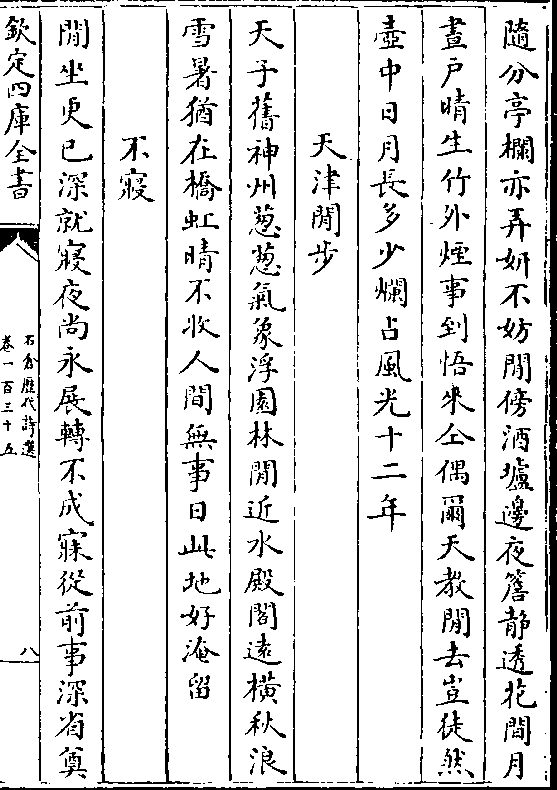 隨分亭欄亦弄妍不妨閒傍酒壚邊夜簷静透花間月
晝戶晴生竹外煙事到悟來全偶爾天教閒去豈徒然
壺中日月長多少爛占風光十二年
天津閒步
天子舊神州葱葱氣象浮園林閒近水殿閣遠橫秋浪
雪暑猶在橋虹晴不收人間無事日此地好淹留
不寢
閒坐更已深就寢夜尚永展轉不成寐從前事深省奠
欽定四庫全書
石倉歷代詩選
卷一百三十五
八